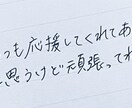 つも応援してくれてあ
思うけど頑張ってね